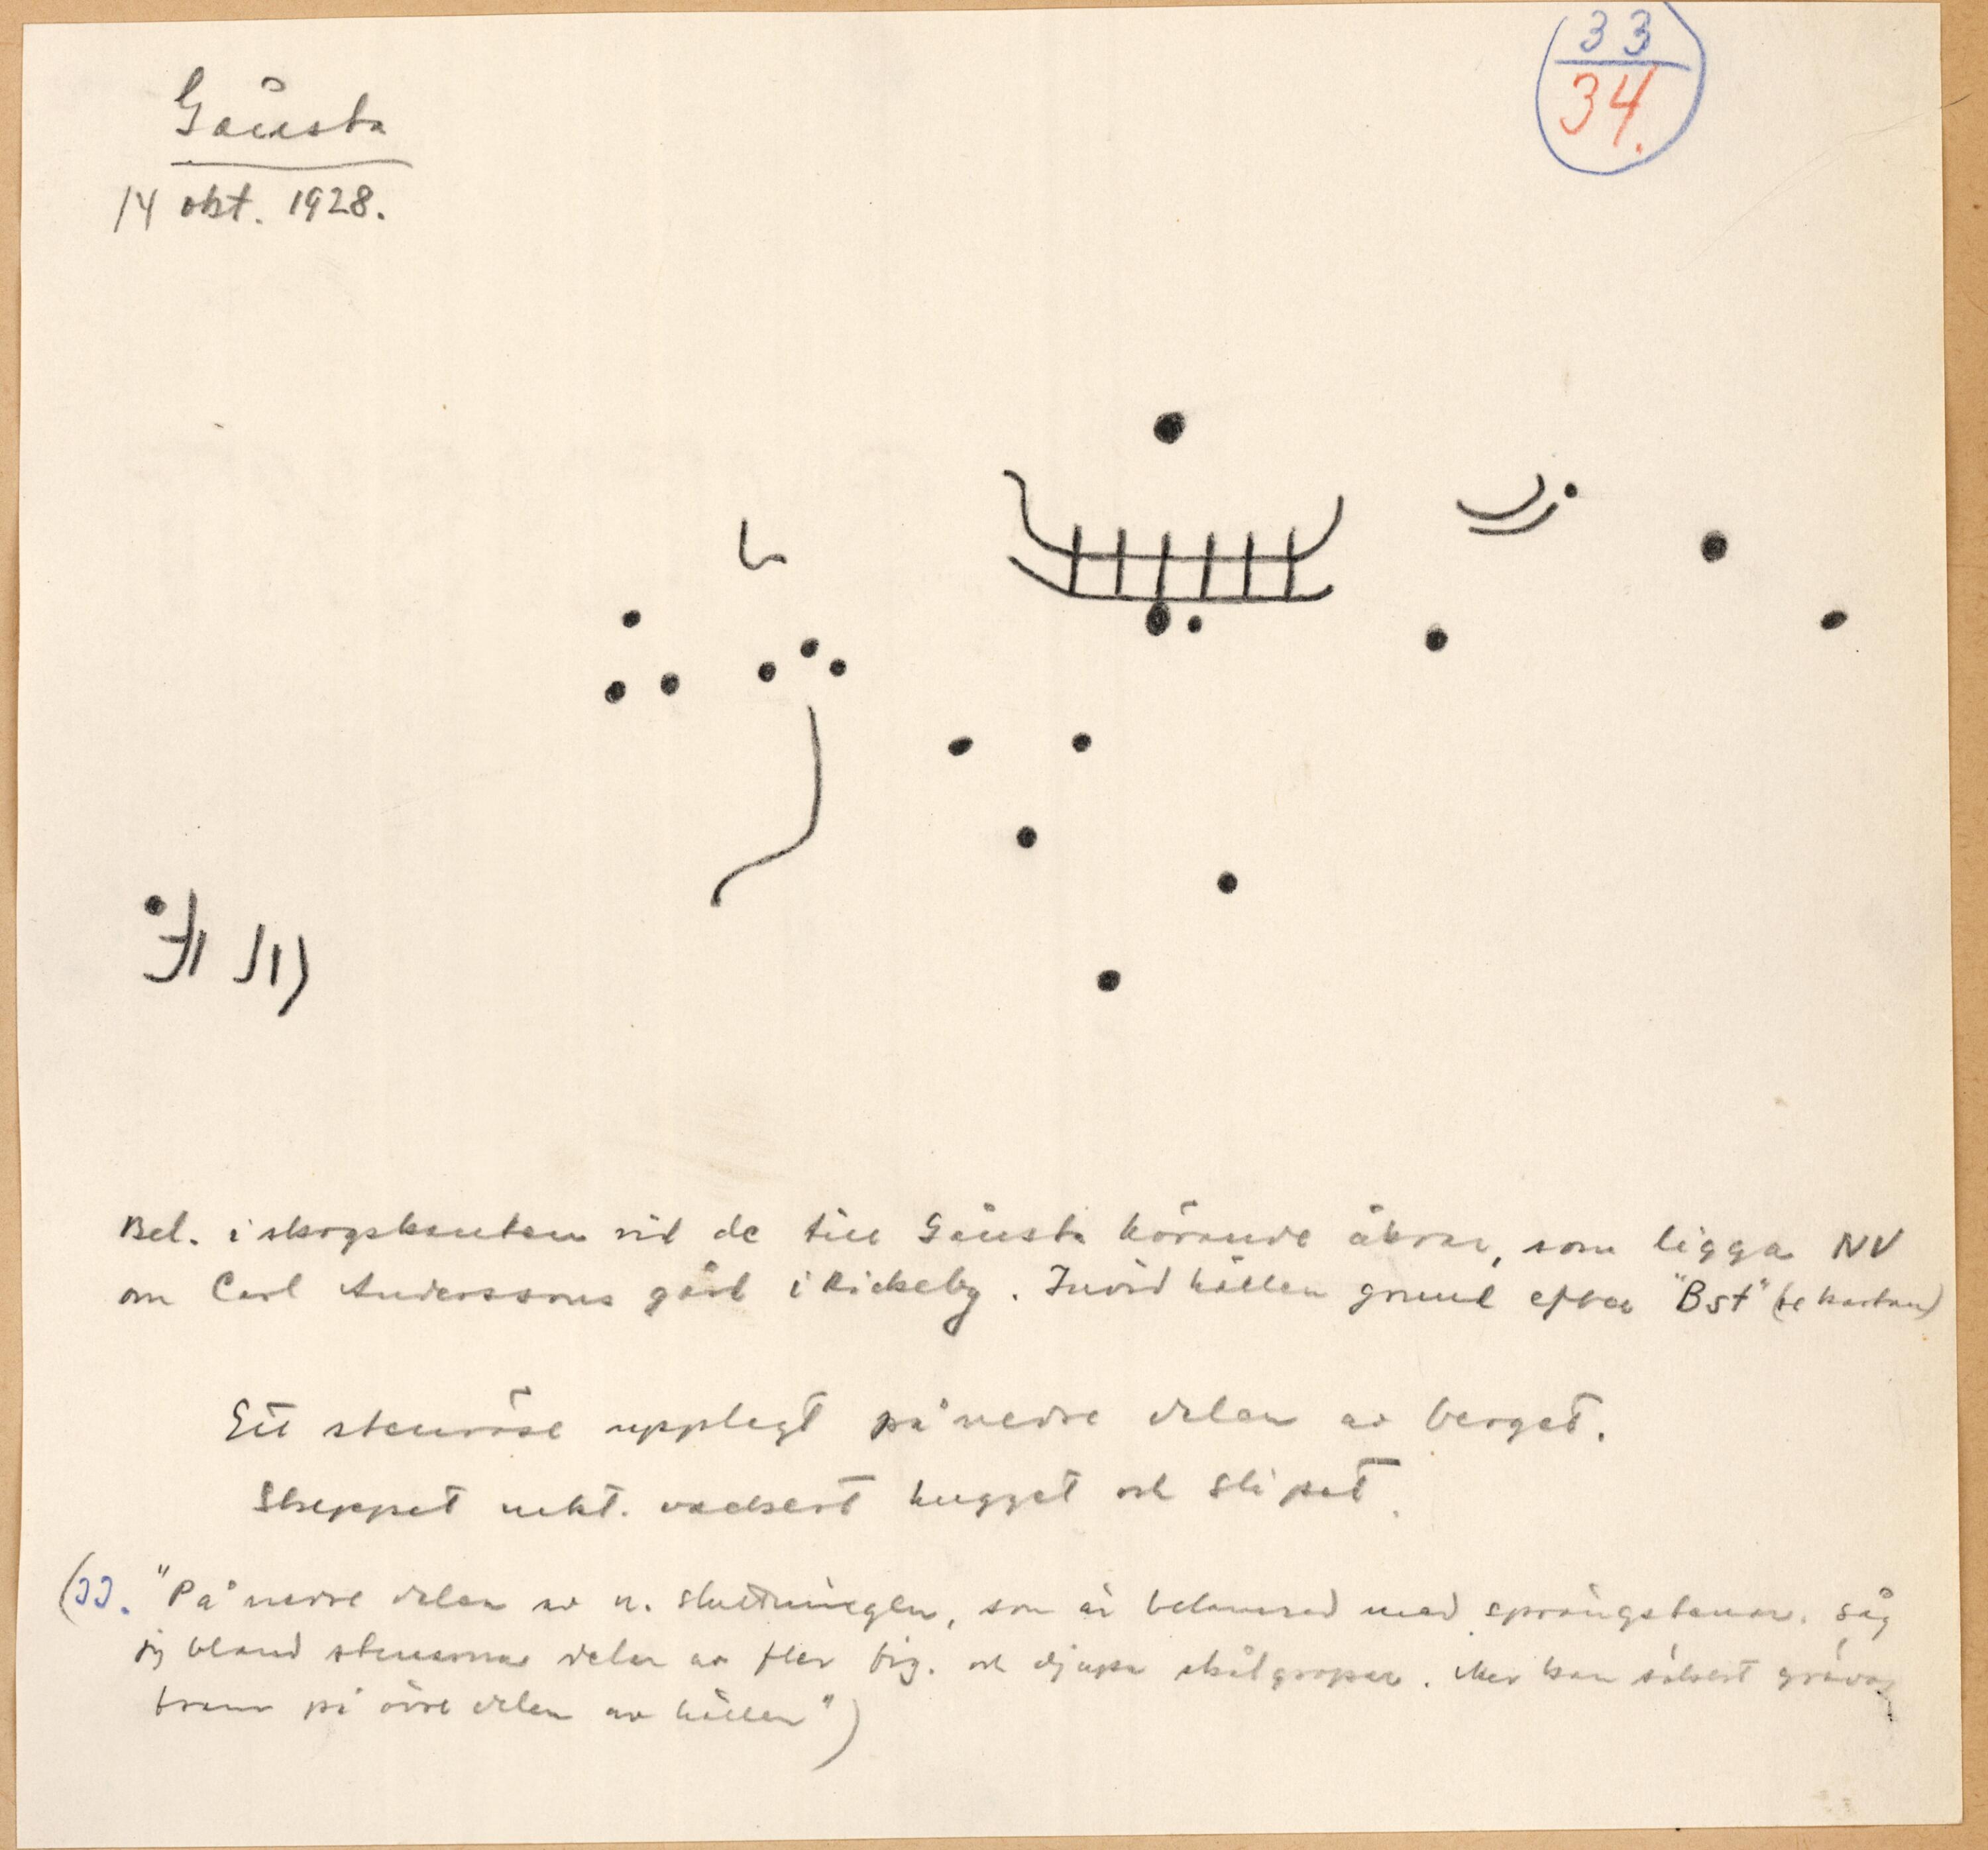 33
34.
Gånsta
14 okt. 1928.
Bel. i skogskanten vid de till Gånsta hörande åkrar, som ligga NV
om Carl Anderssons gård i Rickeby. Invid hällen grund efter "Bst" (se kartan)
Ett stenröse upplagt på nedre delen av berget.
Skeppet utkt. vackert hugget och slipat.
(JJ. "På nedre delen av n. sluttningen, som är belamrad med sprängstenar, såg
jag bland stenarna delar av fler fig. och djupa skålgropar. Mer kan säkert grävas
fram på övre delen av hällen")